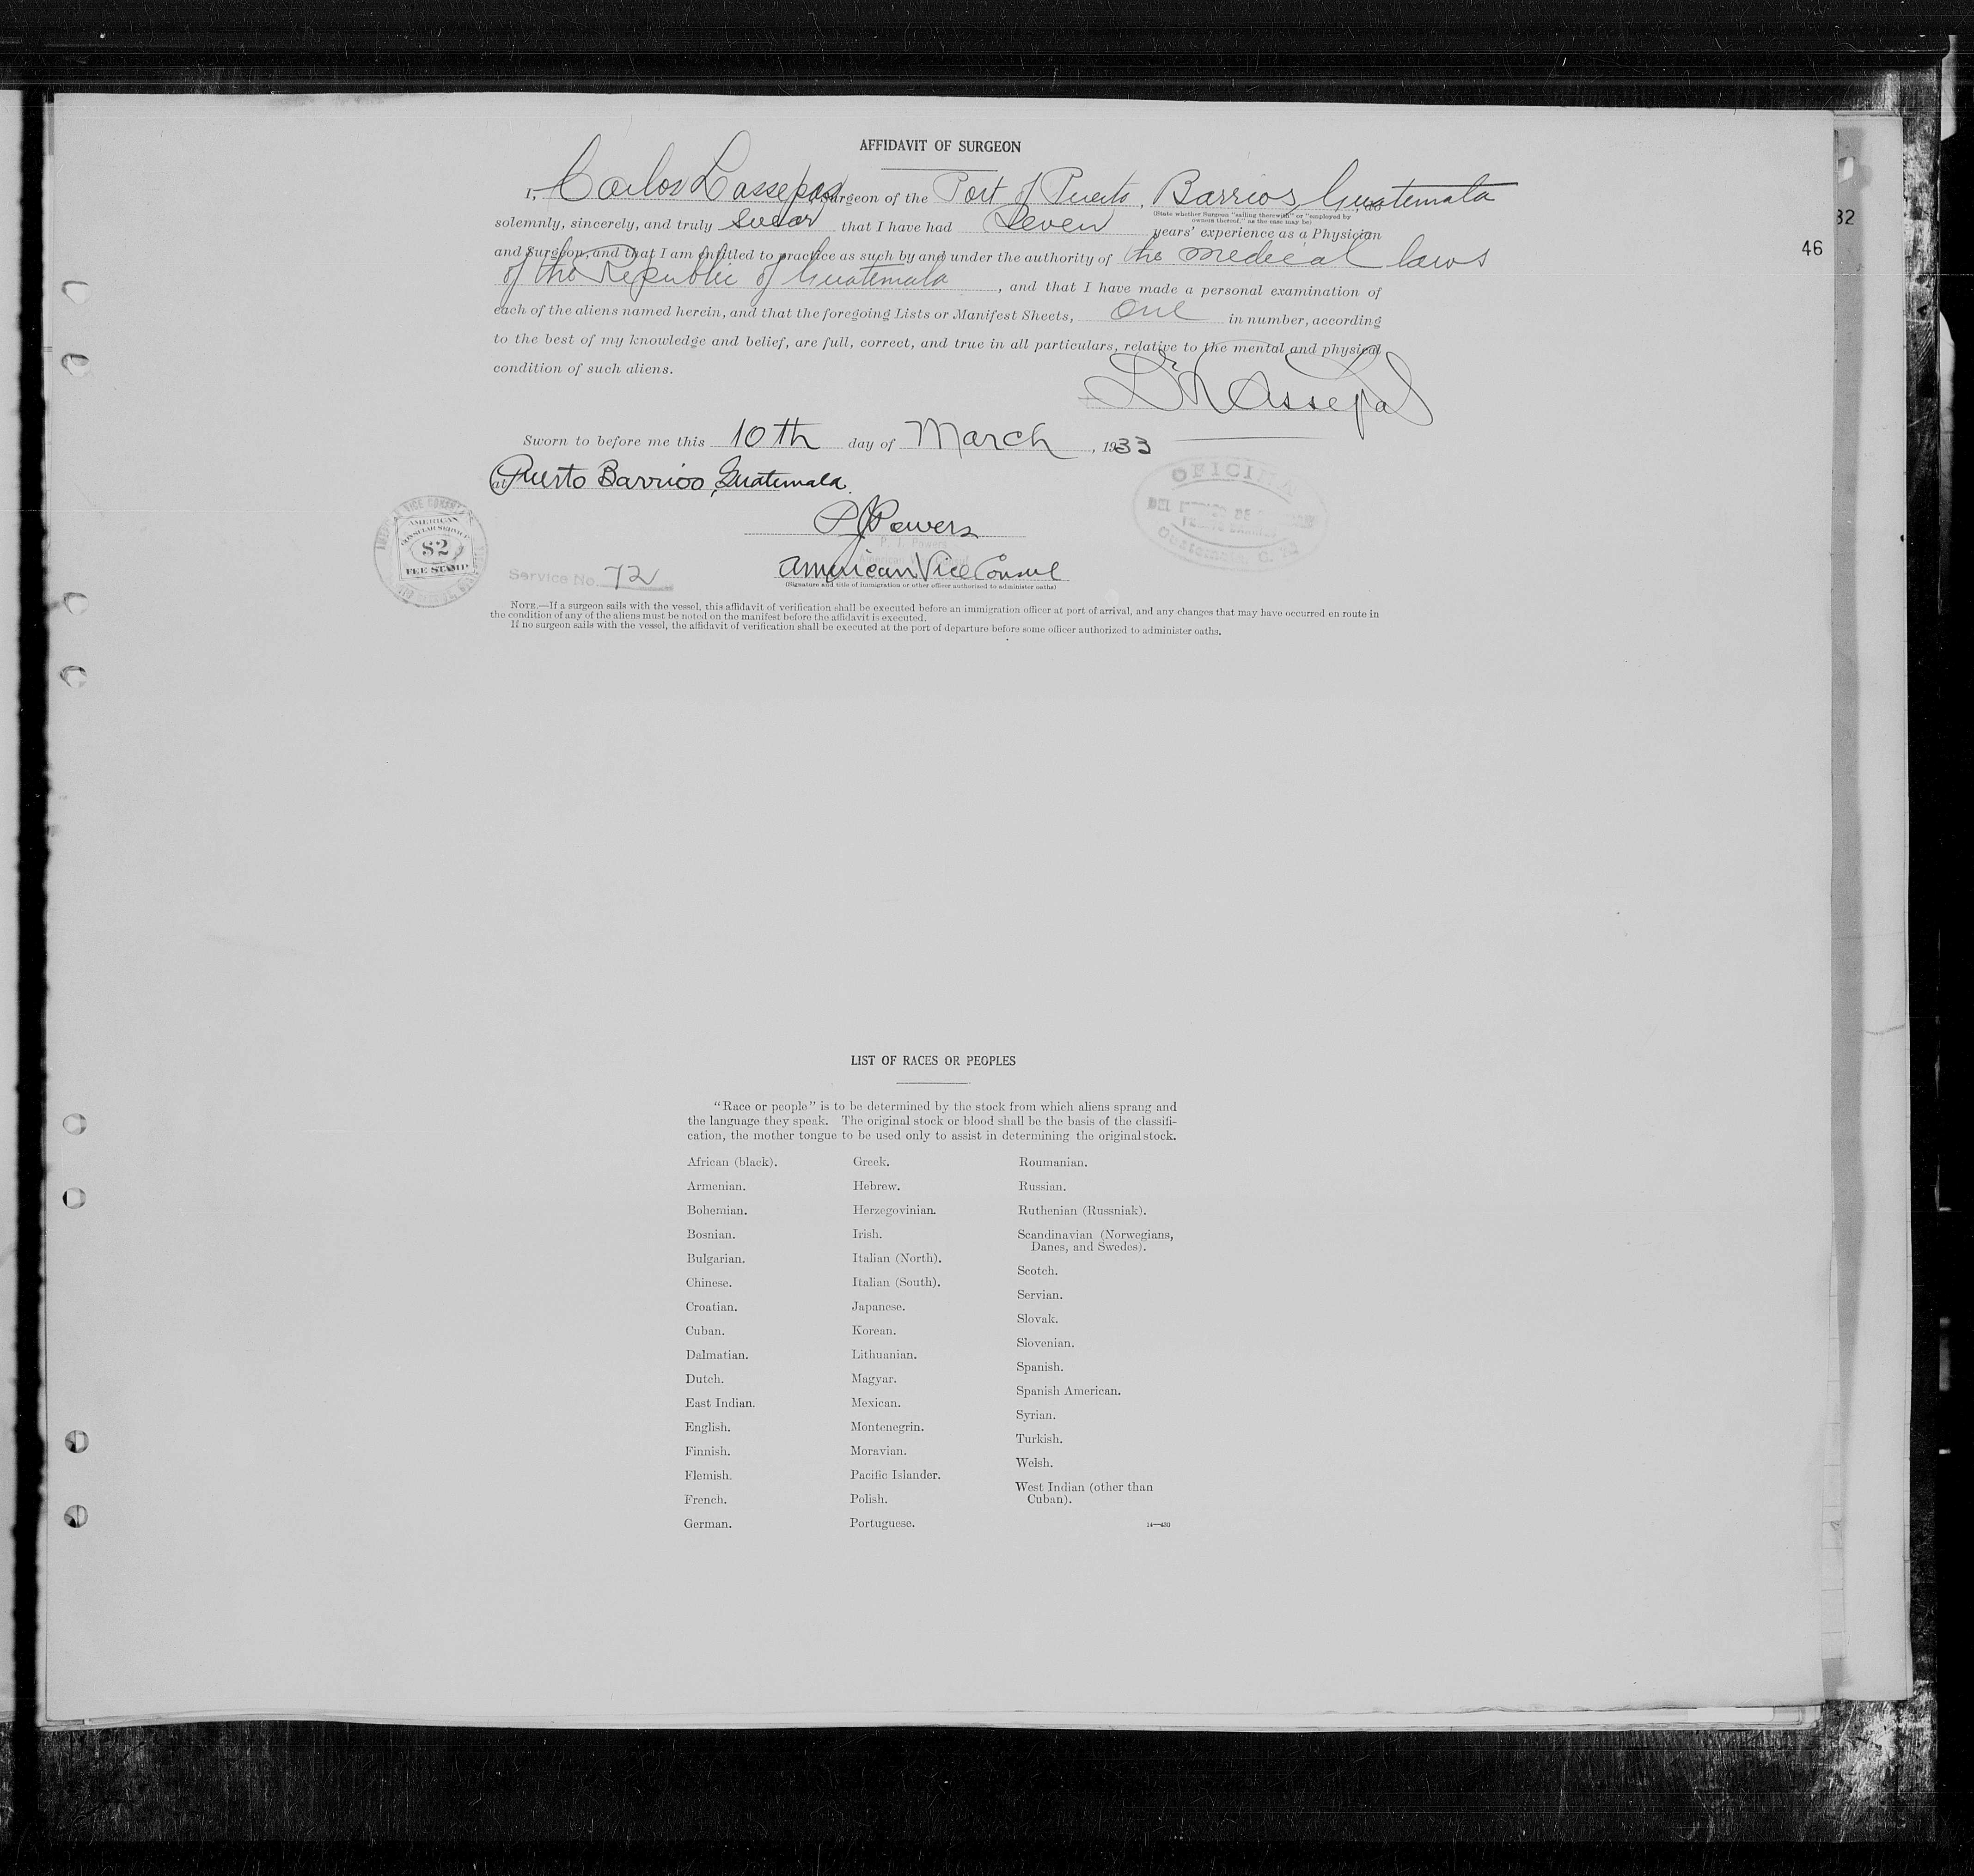 AFFIDAVIT OF SURGEON
I, Carlos Lassepas, Surgeon of the Port of Puerto Barrios, Guatemala, do
(State whether Surgeon "sailing therewith" or "employed by
owners thereof," as the case may be)
solemnly, sincerely, and truly swear that I have had Seven years' experience as a Physician
and Surgeon, and that I am entitled to practice as such by and under the authority of the medical laws
of the Republic of Guatemala, and that I have made a personal examination of
each of the aliens named herein, and that the foregoing Lists or Manifest Sheets, one in number, according
to the best of my knowledge and belief, are full, correct, and true in all particulars, relative to the mental and physical
condition of such aliens.
Dr Lassepas
Sworn to before me this 10th day of March, 1933
at Puerto Barrios, Guatemala.
OFICINA
Guatemala, C. A.
P J Powers
P. J. Powers
AMERICAN
CONSULAR SERVICE
$2
FEE STAMP
Service No. 72
American Vice Consul
(Signature and title of immigration or other officer authorized to administer oaths)
NOTE.—If a surgeon sails with the vessel, this affidavit of verification shall be executed before an immigration officer at port of arrival, and any changes that may have occurred en route in
the condition of any of the aliens must be noted on the manifest before the affidavit is executed.
If no surgeon sails with the vessel, the affidavit of verification shall be executed at the port of departure before some officer authorized to administer oaths.
32
46
LIST OF RACES OR PEOPLES
"Race or people" is to be determined by the stock from which aliens sprang and
the language they speak. The original stock or blood shall be the basis of the classifi-
cation, the mother tongue to be used only to assist in determining the original stock.
African (black).
Armenian.
Bohemian.
Bosnian.
Bulgarian.
Chinese.
Croatian.
Cuban.
Dalmatian.
Dutch.
East Indian.
English.
Finnish.
Flemish.
French.
German.
Greek.
Hebrew.
Herzegovinian.
Irish.
Italian (North).
Italian (South).
Japanese.
Korean.
Lithuanian.
Magyar.
Mexican.
Montenegrin.
Moravian.
Pacific Islander.
Polish.
Portuguese.
Roumanian.
Russian.
Ruthenian (Russniak).
Scandinavian (Norwegians,
Danes, and Swedes).
Scotch.
Servian.
Slovak.
Slovenian.
Spanish.
Spanish American.
Syrian.
Turkish.
Welsh.
West Indian (other than
Cuban).
14—430